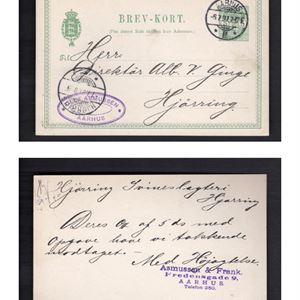 BREV-KORT.
(Paa denne Side skrives kun Adressen.)
Til
Herr
Direktör Alb. V.
Hjörring
AARHUS
Hjörring Svineslagteri
Hjörring
Deres Af 5 ds med
Opgave have vi takkende
modtaget. — Med Höjagtelse.
Asmussen & Frank.
Fredensgade 9,
AARHUS.
Telefon 250.